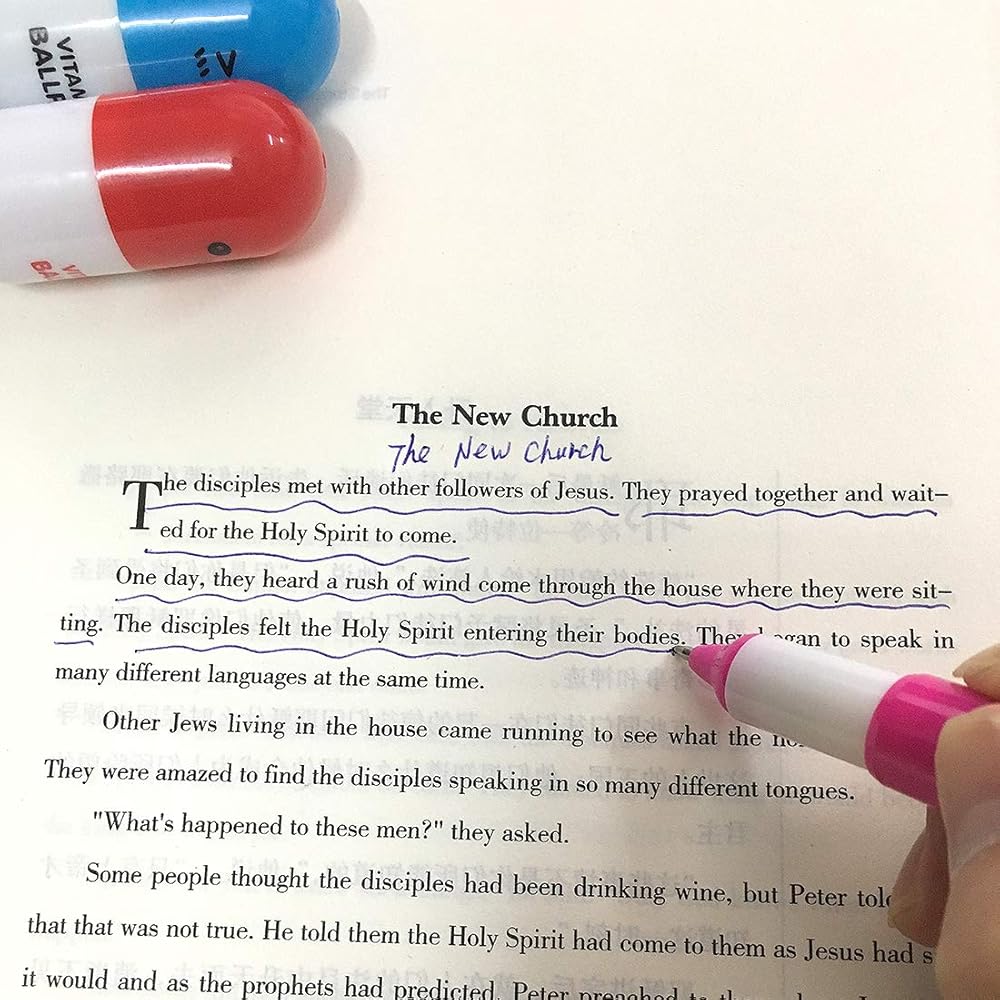 VITAM
BALLP
VI
BA
The New Church
The New Church
The disciples met with other followers of Jesus. They prayed together and wait-
ed for the Holy Spirit to come.
One day, they heard a rush of wind come through the house where they were sit-
ting. The disciples felt the Holy Spirit entering their bodies. They an to speak in
many different languages at the same time.
Other Jews living in the house came running to see what the
They were amazed to find the disciples speaking in so many different tongues.
"What's happened to these men?" they asked.
Some people thought the disciples had been drinking wine, but Peter tol
that that was not true. He told them the Holy Spirit had come to them as Jesus had s
it would and as the prophets had predicted. Peter preached to